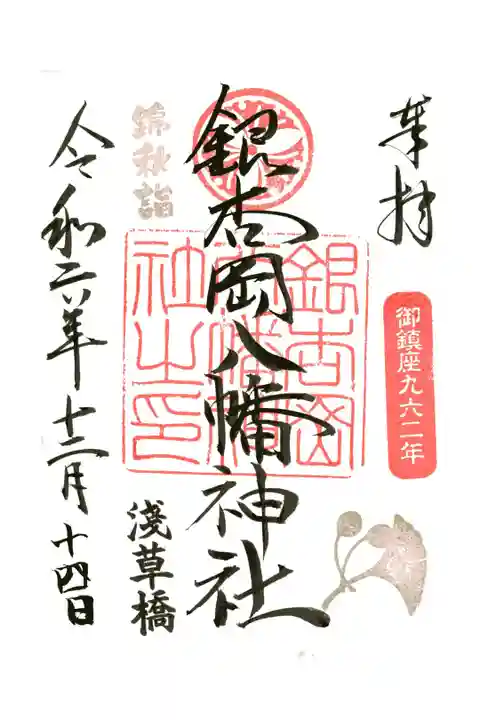 奉拝
御鎮座九六二年
銀杏岡八幡神社
銀杏岡
八幡神
社之印
錦秋詣
浅草橋
令和六年十二月十四日